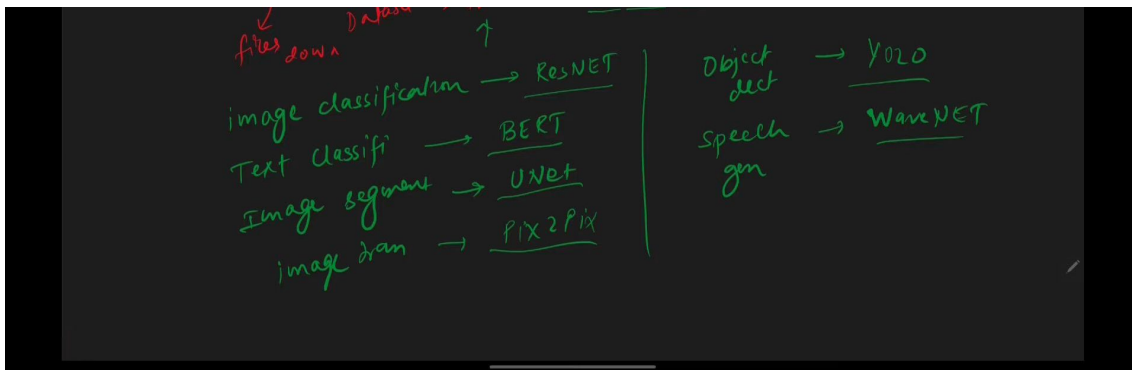 fires down
image classification → ResNET
Text classifi → BERT
Image segment → UNet
image tran → Pix2Pix
Object dect → YOLO
Speech gen → WaveNET